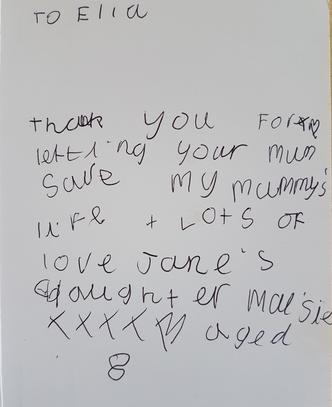 TO Ella
thank you For
letting your mum
save my mummy's
life + LOTS OF
love Jane's
daughter Maisie
xxxx aged
8